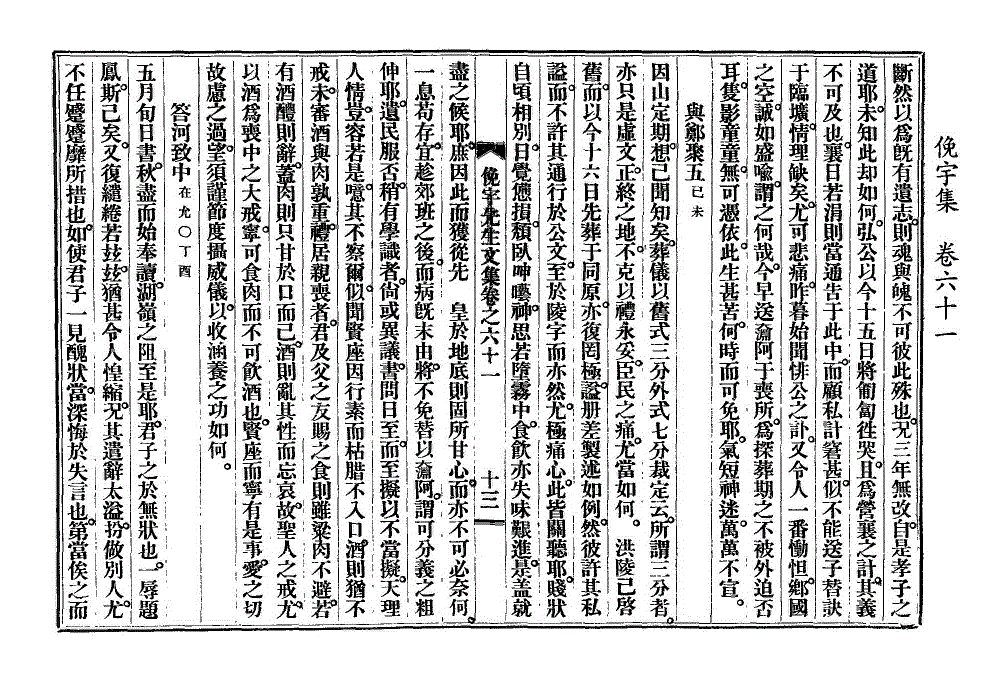 俛宇集 卷六十一
斷然以爲旣有遺志則魂與魄不可彼此殊也况三年無改自是孝子之
道耶未知此却如何弘公以今十五日將匍匐徃哭且爲營襄之計其義
不可及也襄日若涓則當通告于此中而顧私計窘甚似不能送子替訣
于臨壙情理缺矣尤可悲痛昨暮始聞悱公之訃又令人一番慟怛鄕國
之空誠如盛喩謂之何哉今早送瀹阿于喪所爲探葬期之不被外迫否
耳隻影童童無可憑依此生甚苦何時而可免耶氣短神迷萬萬不宣
與鄭聚五己未
因山定期想已聞知矣葬儀以舊式三分外式七分裁定云所謂三分者
亦只是虛文正終之地不克以禮永妥臣民之痛尤當如何 洪陵已啓
舊而以今十六日先葬于同原亦復罔極謚册差製述如例然彼許其私
謚而不許其通行於公文至於陵字而亦然尤極痛心此皆關聽耶賤狀
自頃相別日覺憊損頹臥呻囈神思若墮霧中食飮亦失味艱進是盖就
俛宇先生文集卷之六十一 十三
盡之候耶庶因此而獲從先 皇於地底則固所甘心而亦不可必奈何
一息苟存宜趁郊班之後而病旣末由將不免替以瀹阿謂可分義之粗
伸耶遺民服否稍有學識者尙或異議書問日至而至擬以不當擬天理
人情豈容若是噫其不察爾似聞賢座因行素而枯腊不入口酒則猶不
戒未審酒與肉孰重禮居親喪者君及父之友賜之食則雖粱肉不避若
有酒醴則辭盖肉則只甘於口而已酒則亂其性而忘哀故聖人之戒尤
以酒爲喪中之大戒寧可食肉而不可飮酒也賢座而寧有是事愛之切
故慮之過望須謹節度攝威儀以收涵養之功如何
答河致中在允○丁酉
五月旬日書秋盡而始奉讀湖嶺之阻至是耶君子之於無狀也一辱題
鳳斯已矣又復繾綣若玆玆猶甚令人惶縮况其遣辭太溢扮做別人尤
不任蹙蹙靡所措也如使君子一見醜狀當深悔於失言也第當俟之而